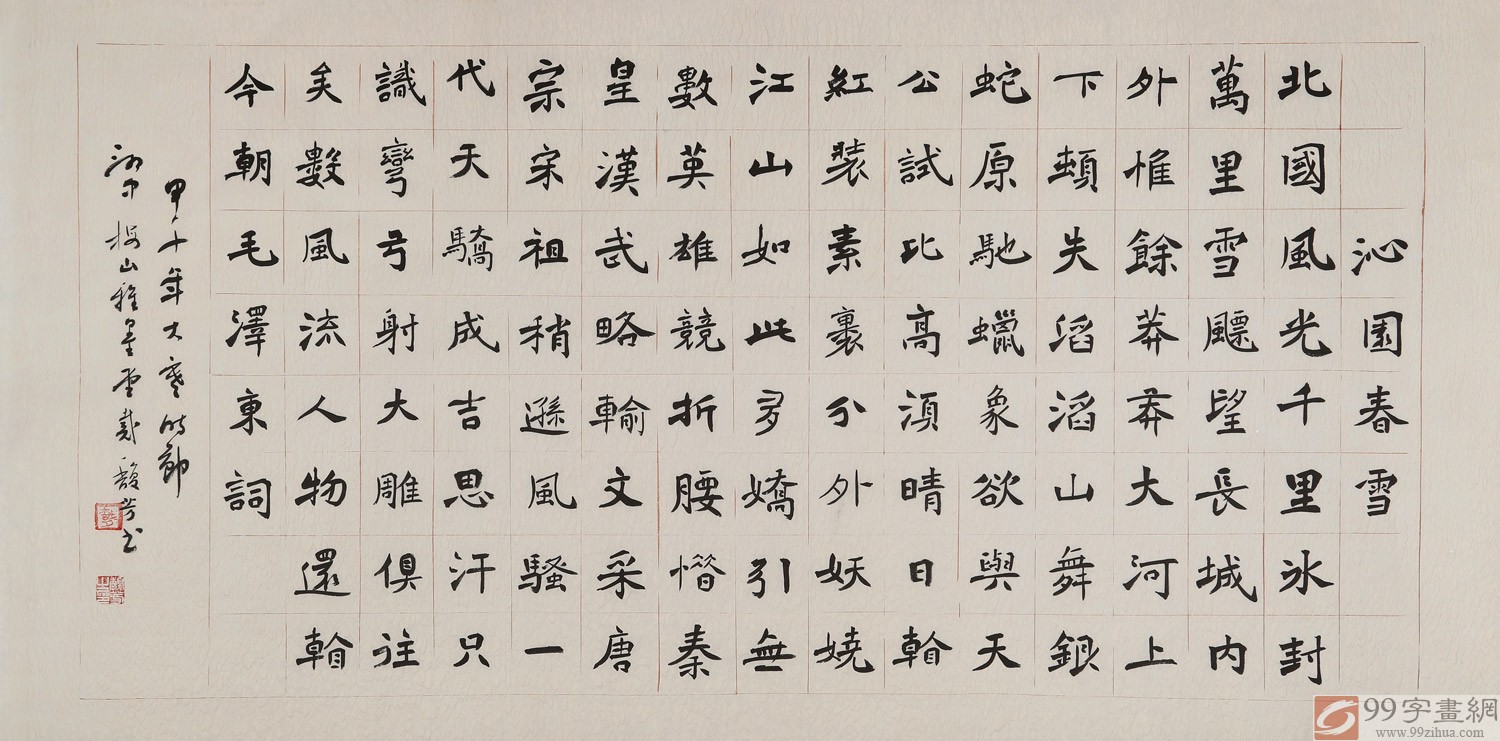 沁園春雪
北國風光千里冰封
萬里雪飄望長城内
外惟餘莽莽大河上
下頓失滔滔山舞銀
蛇原馳蠟象欲與天
公試比高須晴日看
紅裝素裹分外妖嬈
江山如此多嬌引無
數英雄競折腰惜秦
皇漢武略輸文采唐
宗宋祖稍遜風騷一
代天驕成吉思汗只
識彎弓射大雕俱往
矣數風流人物還看
今朝毛澤東詞
甲午年大寒時節
梅山戴馥芳书
99字畫網
www.99zihua.com